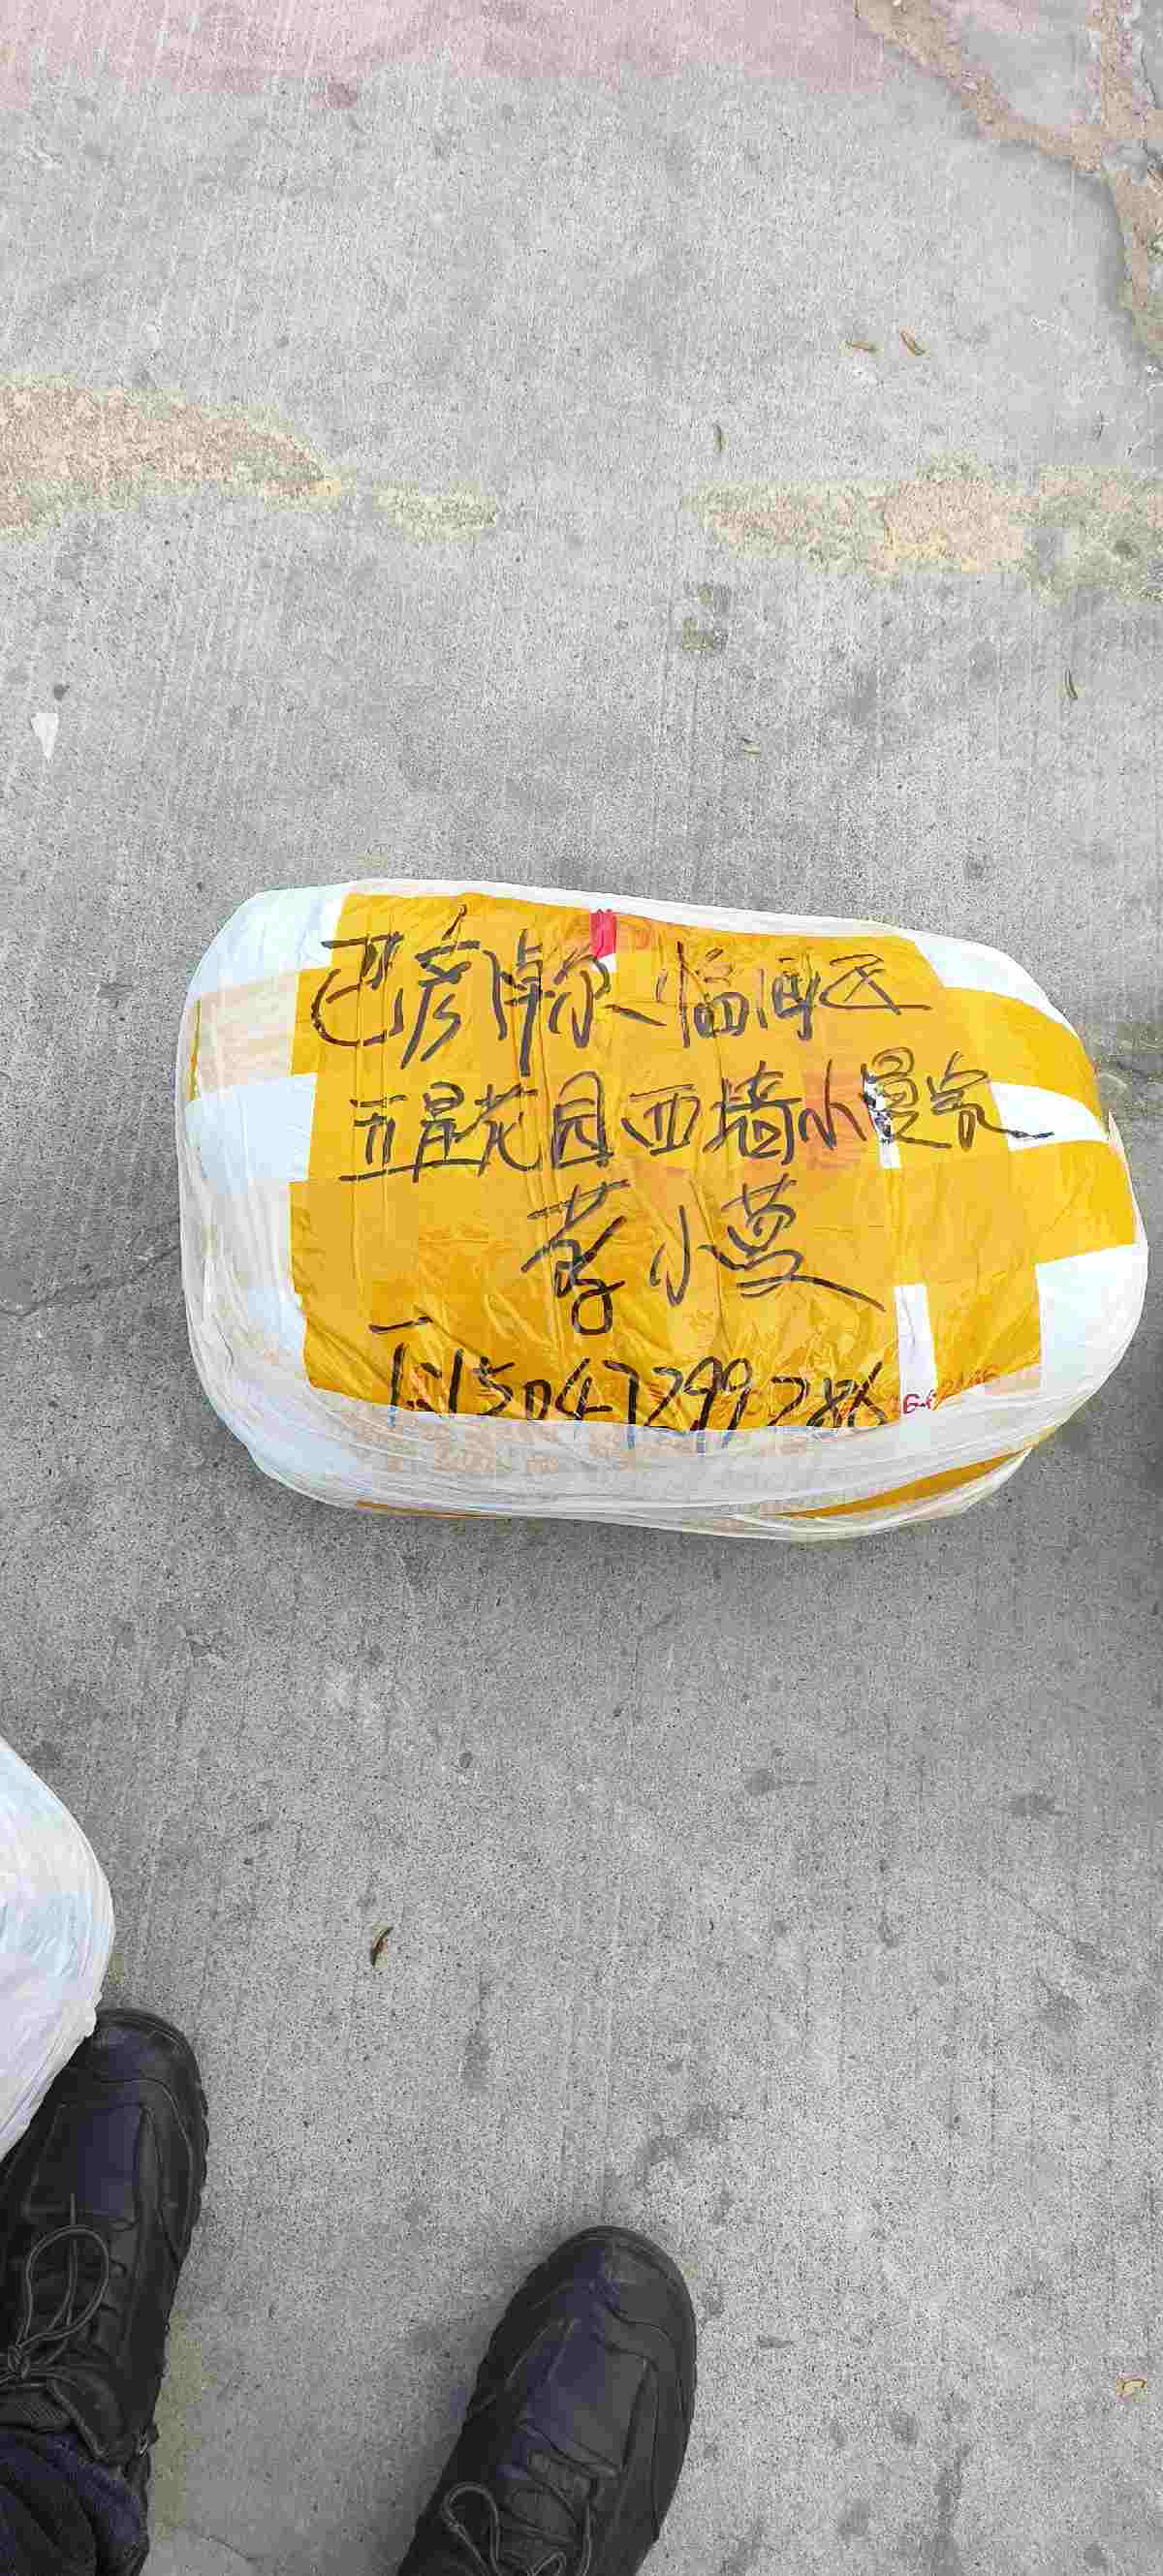 巴彦淖尔临河区
五星花园西墙小曼家
李小蔓
15047299286